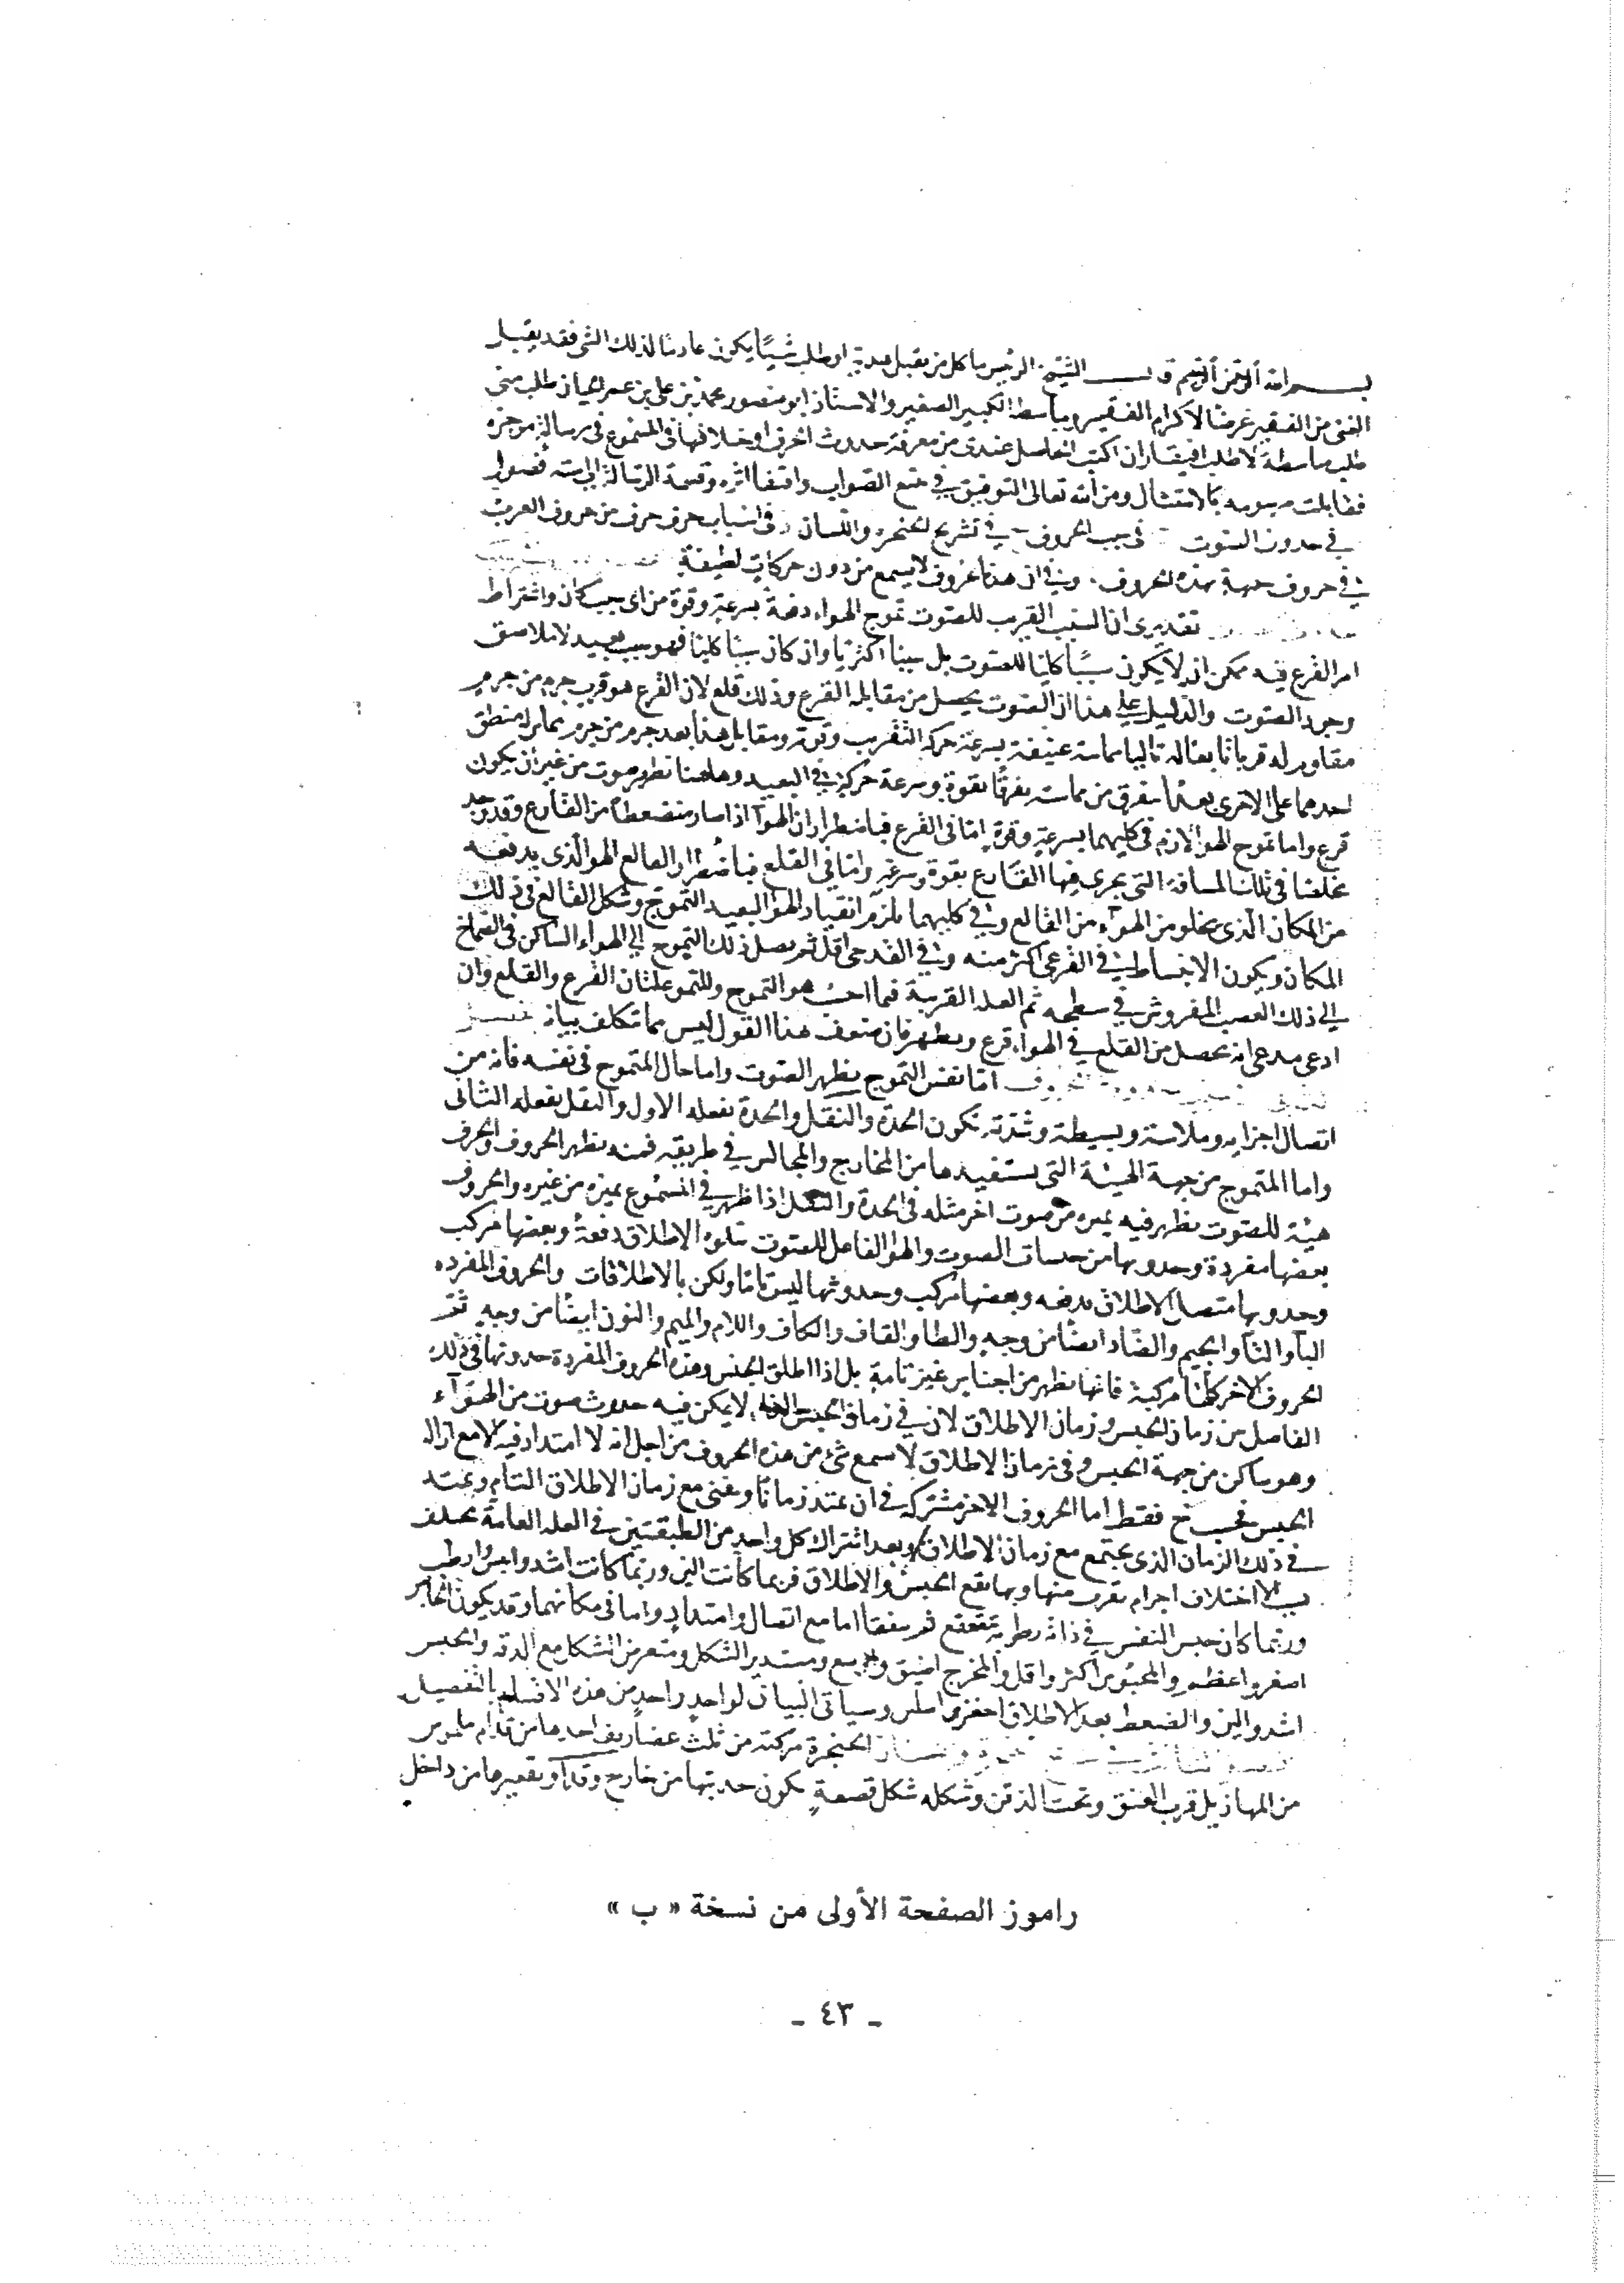 بسم الله الرحمن الرحيم قال الشيخ الرئيس ما كل من تقبل هدية او طلب شيئا يكون عادما لذلك الشي فقد يقبل
الغنى من الفقير غرضا لاكرام الفقير ويباسط الكبير الصغير والاستاذ ابو منصور محمد بن على بن عمر الجبان طلب منى
طلب مباسطة لا طلب افتقار ان اكتب الحاصل عندى من معرفة حدوث الحرف واختلافها فى المسموع فى رسالة موجزة
فقابلت مرسومه بالامتثال ومن الله تعالى التوفيق فى تتبع الصواب واقتفا اثره وقسمة الرسالة الى ستة فصول
فى حدوث الصوت فى سبب الحروف فى تشريح الحنجره واللسان فى اسباب حرف حرف من حروف العرب
فى حروف بهذه الحروف وفى ان هذا الحروف لا يسمع من دون حركات لطيفة
تقديرى ان السبب القريب للصوت تموج الهواء دفعة بسرعة وقوة من اى سبب كان واشتراط
امر القرع فيه ممكن ان لا يكون سببا كليا للصوت بل سببا اكثريا وان كان سببا كليا فهو سبب بعيد لا ملاصق
وجود الصوت والدليل على هذا ان الصوت يحصل من مقابله القرع وذلك قلع لان القرع هو قرب جرم من جرم
مقاوم له قربا تماسة عنيفة بسرعة حركة التقريب وقوته ومقابل هذا بعد جرم من جرم مماس له منطق
احدهما على الاخرى بعدا يتفرق من مماسته تفرقا بقوة وسرعة حركة فى البعيد وهاهنا تظهر صوت من غير ان يكون
قرع واما تموج الهوا لازم فى كليهما بسرعة وقوة اما فى القرع فباضطرار ان الهوآ اذا صار منضغطا من القارع وقد وجد
مخلصا فى تلك المسافة التى يجرى فيها القارع بقوة وسرعة واما فى القلع فباضطرار القالع الهوا الذى يدفعه
من المكان الذى يخلو من الهوآء من القالع وفى كليهما يلزم انقياد الهوا البعيد التموج وشكل القالع فى ذلك
المكان ويكون الانبساط فى القرعى اكثر منه وفى القلعى اقل ثم يصل ذلك التموج الى الهواء الساكن فى الصماخ
الى ذلك العصب المفروش فى سطحه ثم العلة القريبة فيما احسب هو التموج وللتموج علتان القرع والقلع وان
ادعى مدعى انه يحصل من القلع فى الهواء قرع ويظهر فان ضعف هذا القول ليس مما تكلف بيانه
اما نفس التموج يظهر الصوت واما حال المتموج فى نفسه فانه من
اتصال اجزايه وملاسته وبسيطة وشدته تكون الحدة والثقل والحدة تفعله الاول والثقل تفعله الثانى
واما المتموج من جهة الهيئة التى تستفيدها من المخارج والمجالس فى طريقه فمنه تظهر الحروف والحرف
هيئة للصوت تظهر فيه يميزه من صوت اخر مثله فى الحدة والثقل اذا ظهر فى المسموع يميزه من غيره والحروف
بعضها مفردة وحدوثها من حبسات الصوت والهوا الفاعل للصوت يتلوه الاطلاق دفعة وبعضها مركب
وحدوثها متصل الاطلاق بدفعه وبعضها مركب وحدوثها ليس تاما ولكن بالاطلاقات والحروف المفرده
البآ والتآ والجيم والضاد ايضا من وجه والطا والقاف والكاف واللام والميم والنون ايضا من وجه ثم
الحروف الاخر كلها مركبة فانها تظهر من اجناس غير تامة بل اذا اطلق الجنس وهذه الحروف المفردة حدوثها فى ذلك
الفاصل من زمان الحبس وزمان الاطلاق لان فى زمان الحبس لا يمكن فيه حدوث صوت من الهوآء
وهو ساكن من جهة الحبس وفى زمان الاطلاق لا يسمع شى من هذه الحروف من اجل انه لا امتداد فيه الا مع ازالة
الحبس فحسب فقط اما الحروف الاخر مشتركة فى ان تمتد زمانا ويفنى مع زمان الاطلاق التام وتمتد
فى ذلك الزمان الذى يجتمع مع زمان الاطلاق وبعد اشتراك كل واحد من الطبقتين فى العلة العامة تختلف
بسبب الاختلاف اجرام يقرب منها وبها يقع الحبس والاطلاق فربما كانت الين وربما كانت اشد وايبس وارطب
وربما كان حبس النفس فى ذاته رطوبة تتقعقع ثم تفقا اما مع اتصال وامتداد واما فى مكانها وقد يكون الحابس
اصغر واعظم والمحبوس اكثر واقل والمخرج اضيق واوسع ومستدير الشكل ومتعرض الشكل مع الدقة والحبس
اشد والين والضغط بعد الاطلاق احفز او اسلس وسياتى البيان لواحد واحد من هذه الاقسام بالتفصيل
الحنجرة مركبة من ثلث غضاريف احدها من قدام ملموس
من المهازيل قرب العنق وتحت الذقن وشكله شكل قصعة يكون حدبتها من خارج وقدام وتقعيرها من داخل
راموز الصفحة الأولى من نسخة « ب »
- ٤٣ -